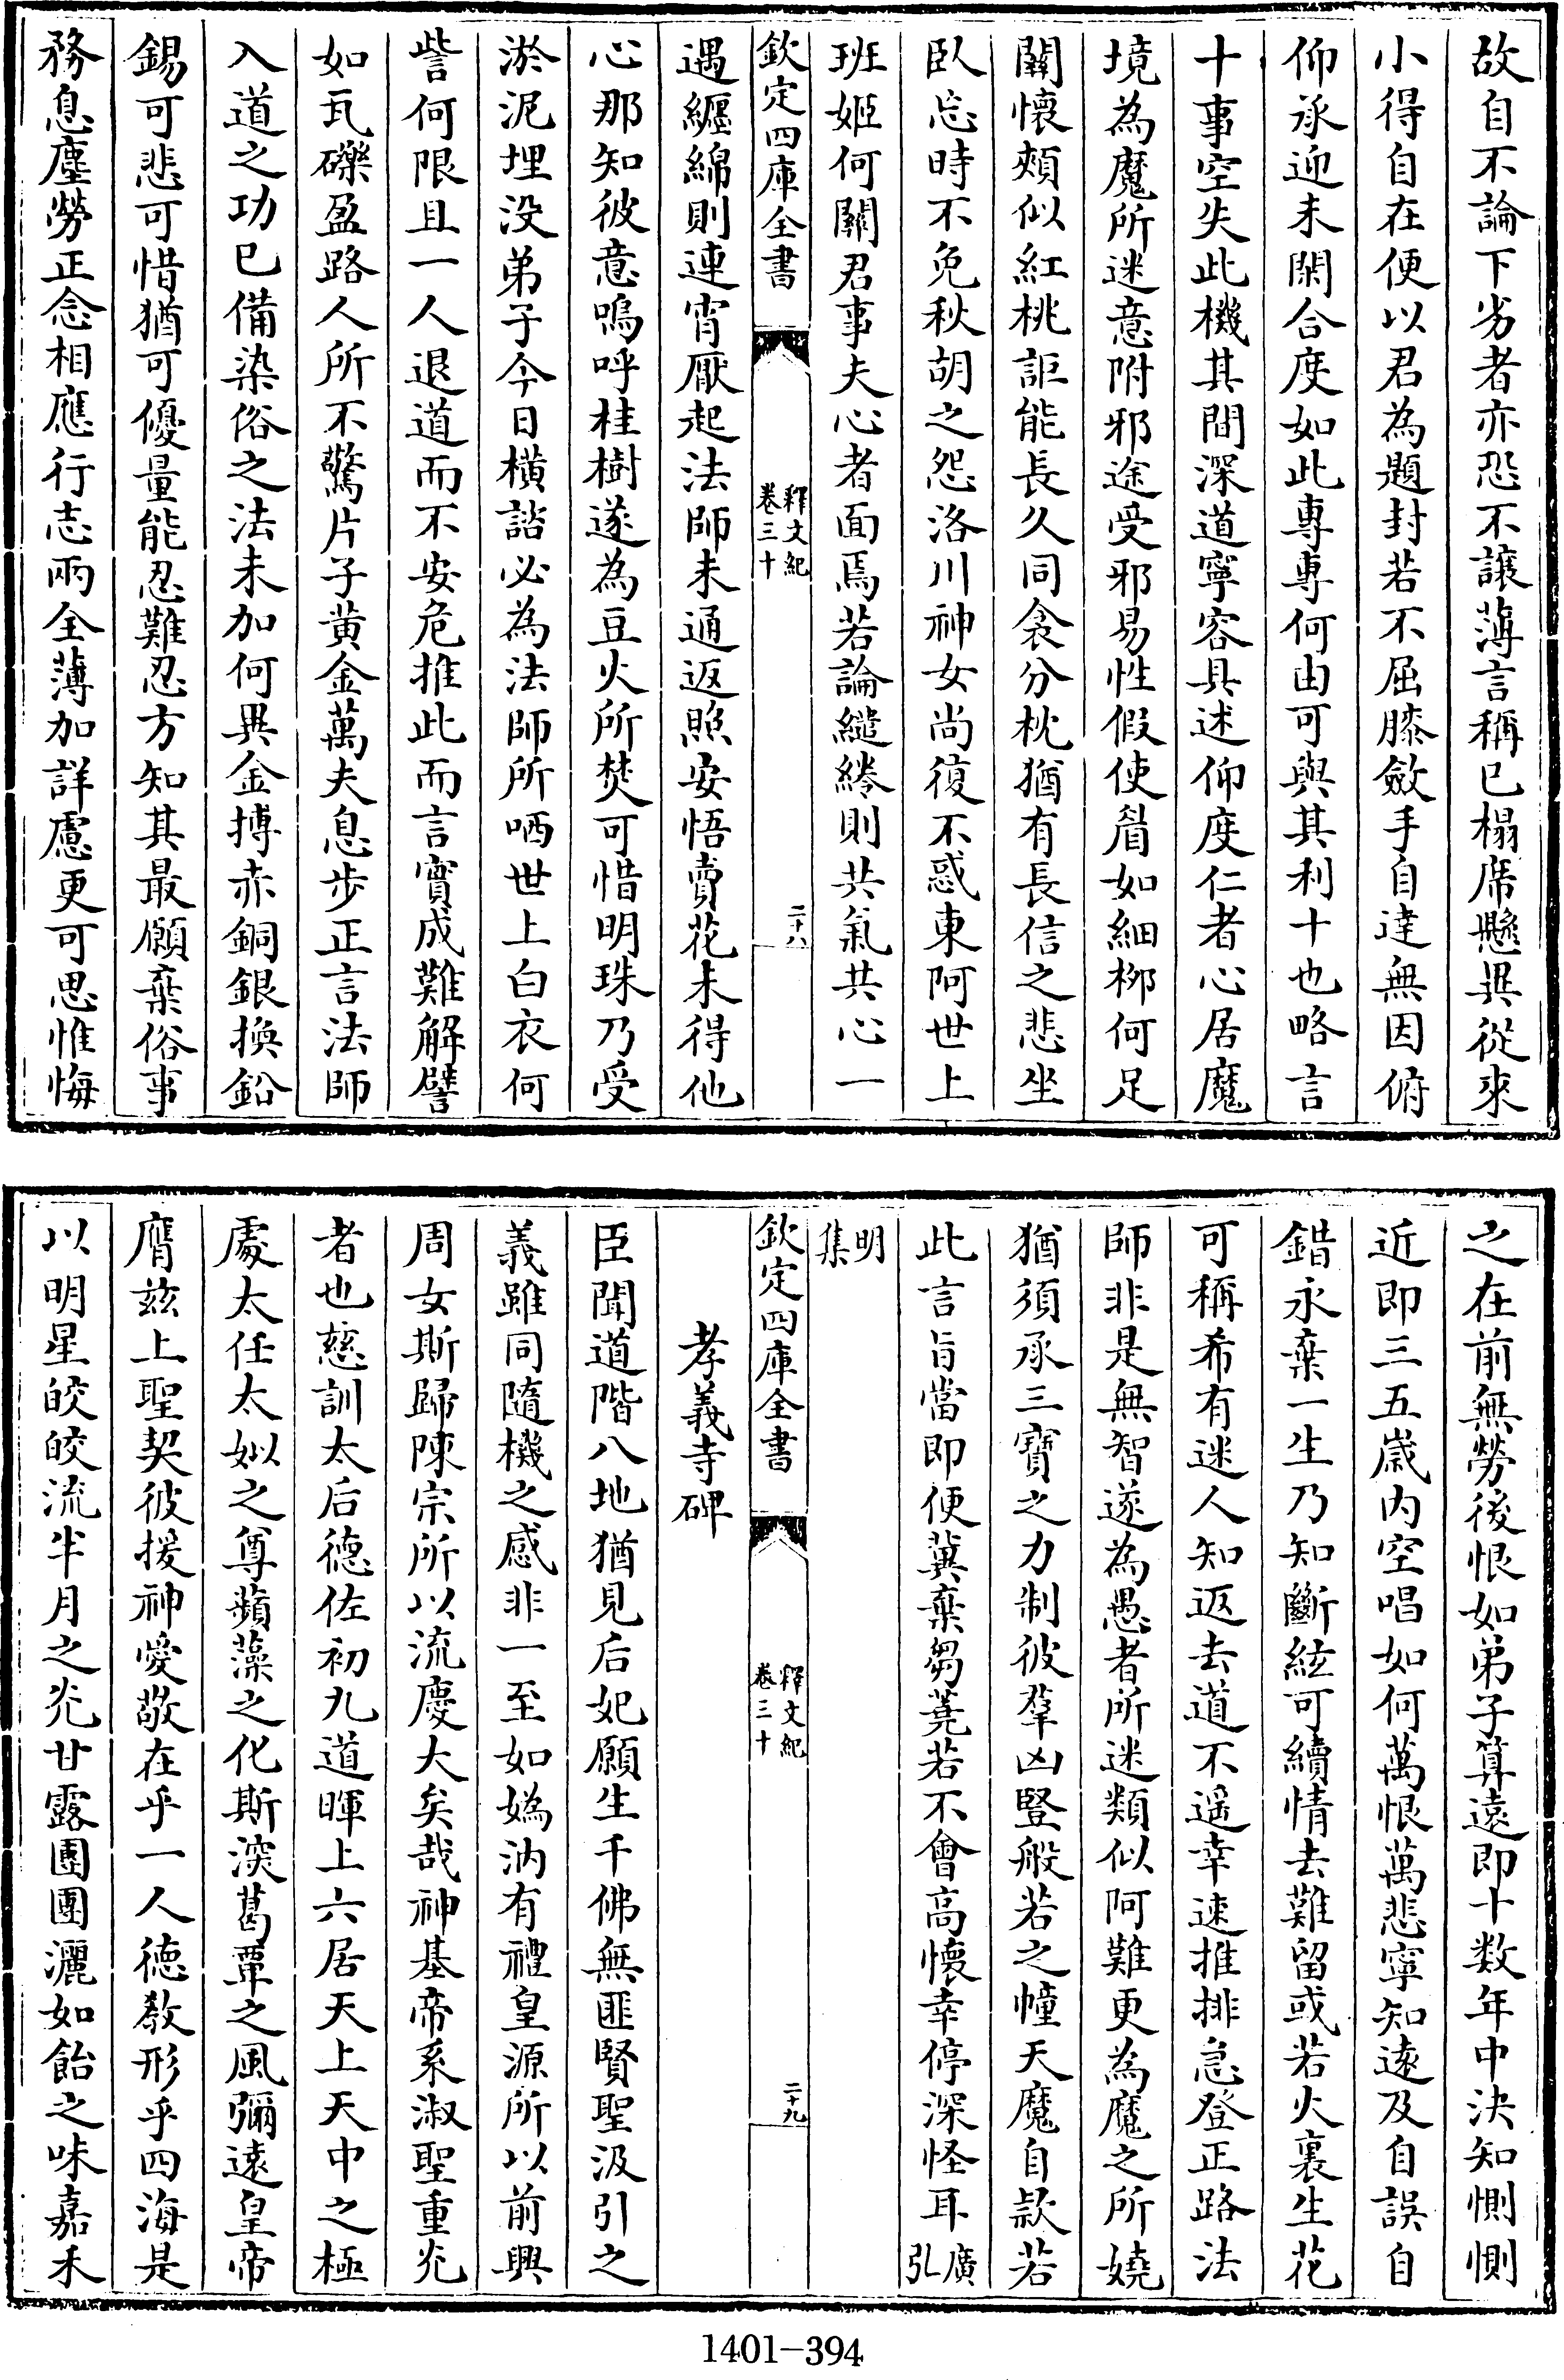 故自不論下劣者亦恐不讓薄言稱已榻席懸異從來
小得自在便以君為題封若不屈膝斂手自達無因俯
仰承迎未閑合度如此專專何由可與其利十也略言
十事空失此機其間深道寧容具述仰度仁者心居魔
境為魔所迷意附邪途受邪易性假使眉如細柳何足
關懷頰似紅桃詎能長久同衾分枕猶有長信之悲坐
臥忘時不免秋胡之怨洛川神女尚復不惑東阿世上
班姬何關君事夫心者面焉若論繾綣則共氣共心一
欽定四庫全書
釋文紀
卷三十
二十八
遇纒綿則連宵厭起法師未通返照安悟賣花未得他
心那知彼意嗚呼桂樹遂為豆火所焚可惜明珠乃受
淤泥埋没弟子今日橫諮必為法師所哂世上白衣何
訾何限且一人退道而不安危推此而言實成難解譬
如瓦礫盈路人所不驚片子黄金萬夫息步正言法師
入道之功已備染俗之法未加何異金搏赤銅銀換鉛
錫可悲可惜猶可優量能忍難忍方知其最願棄俗事
務息塵勞正念相應行志兩全薄加詳慮更可思惟悔
之在前無勞後恨如弟子算遠即十数年中決知惻惻
近即三五歲内空唱如何萬恨萬悲寧知遠及自誤自
錯永棄一生乃知斷絃可續情去難留或若火裏生花
可稱希有迷人知返去道不遥幸速推排急登正路法
師非是無智遂為愚者所迷類似阿難更為魔之所嬈
猶須承三寶之力制彼羣凶豎般若之幢天魔自款若
此言旨當即便冀棄芻蕘若不會高懷幸停深怪耳廣弘
明集
欽定四庫全書
釋文紀
卷三十
二十九
孝義寺碑
臣聞道階八地猶見后妃願生千佛無匪賢聖汲引之
義雖同隨機之感非一至如嬀汭有禮皇源所以前興
周女斯歸陳宗所以流慶大矣哉神基帝系淑聖重光
者也慈訓太后德佐初九道暉上六居天上天中之極
處太任太姒之尊蘋藻之化斯深葛覃之風彌遠皇帝
膺兹上聖契彼援神愛敬在乎一人德教形乎四海是
以明星皎皎流半月之光甘露團團灑如飴之味嘉禾
1401-394